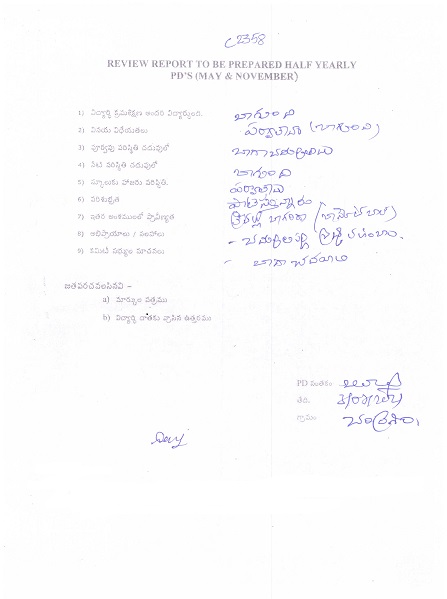 C2358
REVIEW REPORT TO BE PREPARED HALF YEARLY
PD'S (MAY & NOVEMBER)
1) విద్యార్థి క్రమశిక్షణ అందరి విద్యార్థుంది. బాగుంది
2) వినయ విధేయతలు పర్వాలేదు (బాగుంది)
3) పూర్వపు పరిస్థితి చదువులో బాగా చదువుతాడు
4) నేటి పరిస్థితి చదువులో బాగుంది
5) స్కూలుకు హాజరు పరిస్థితి. పర్వాలేదు
6) పరిశుభ్రత పాటిస్తున్నారు
7) ఇతర అంశములలో ప్రావీణ్యత
8) అభిప్రాయాలు / సలహాలు
9) కమిటి సభ్యుల సూచనలు - బాగా చదవాలి
జతపరచవలసినవి –
a) మార్కుల పత్రము
b) విద్యార్థి దాతకు వ్రాసిన ఉత్తరము
PD సంతకం
తేది.
గ్రామం